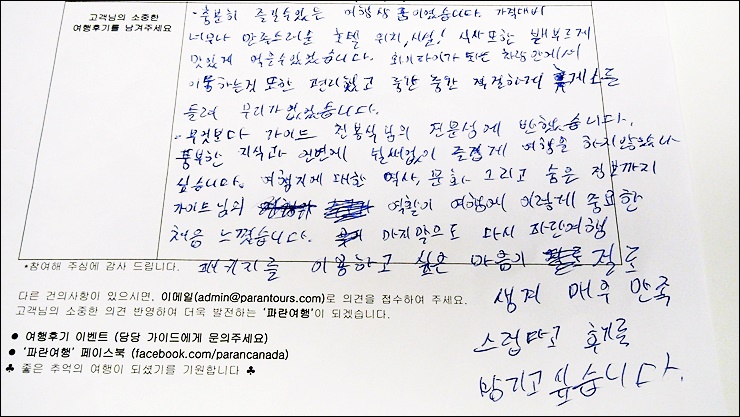 고객님의 소중한
여행후기를 남겨주세요
· 충분히 즐길수있는 여행상품이었습니다. 가격대비
너무나 만족스러운 호텔 위치, 시설! 식사 또한 배부르게
맛있게 먹을수있었습니다.
이동하는것 또한 편리했고 중간 중간 적절하게 휴게소를
들려 무리가 없었습니다.
· 무엇보다 가이드 진봉식님의 전문성에 반했습니다.
풍부한 지식과 언변에 쉴새없이 즐겁게 여행을 하지않았나
싶습니다. 여행지에 대한 역사, 문화 그리고 숨은 정보까지
가이드님의 역할이 여행에 이렇게 중요한
처음 느꼈습니다. 마지막으로 다시 파란여행
패키지를 이용하고 싶은 마음이 절로
생겨 매우 만족
스럽다고 후기를
남기고 싶습니다.
*참여해 주심에 감사 드립니다.
다른 건의사항이 있으시면, 이메일(admin@parantours.com)로 의견을 접수하여 주세요.
고객님의 소중한 의견 반영하여 더욱 발전하는 '파란여행'이 되겠습니다.
● 여행후기 이벤트 (담당 가이드에게 문의주세요)
● '파란여행' 페이스북 (facebook.com/parancanada)
♣ 좋은 추억의 여행이 되셨기를 기원합니다 ♣